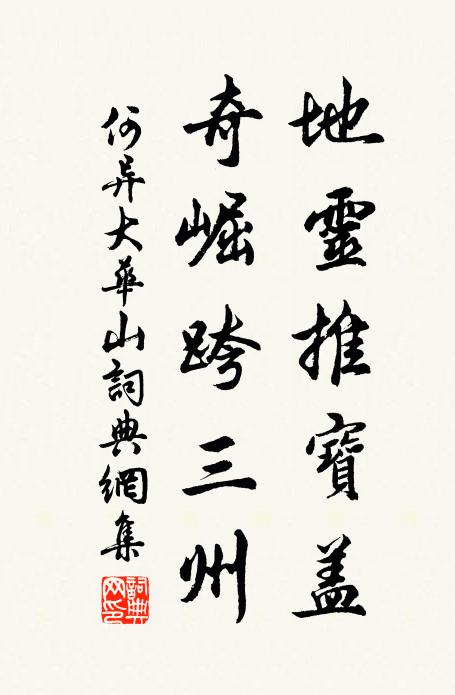 地靈推寶盖
奇崛跨三州
何异大華山詞典網集
詞典網印